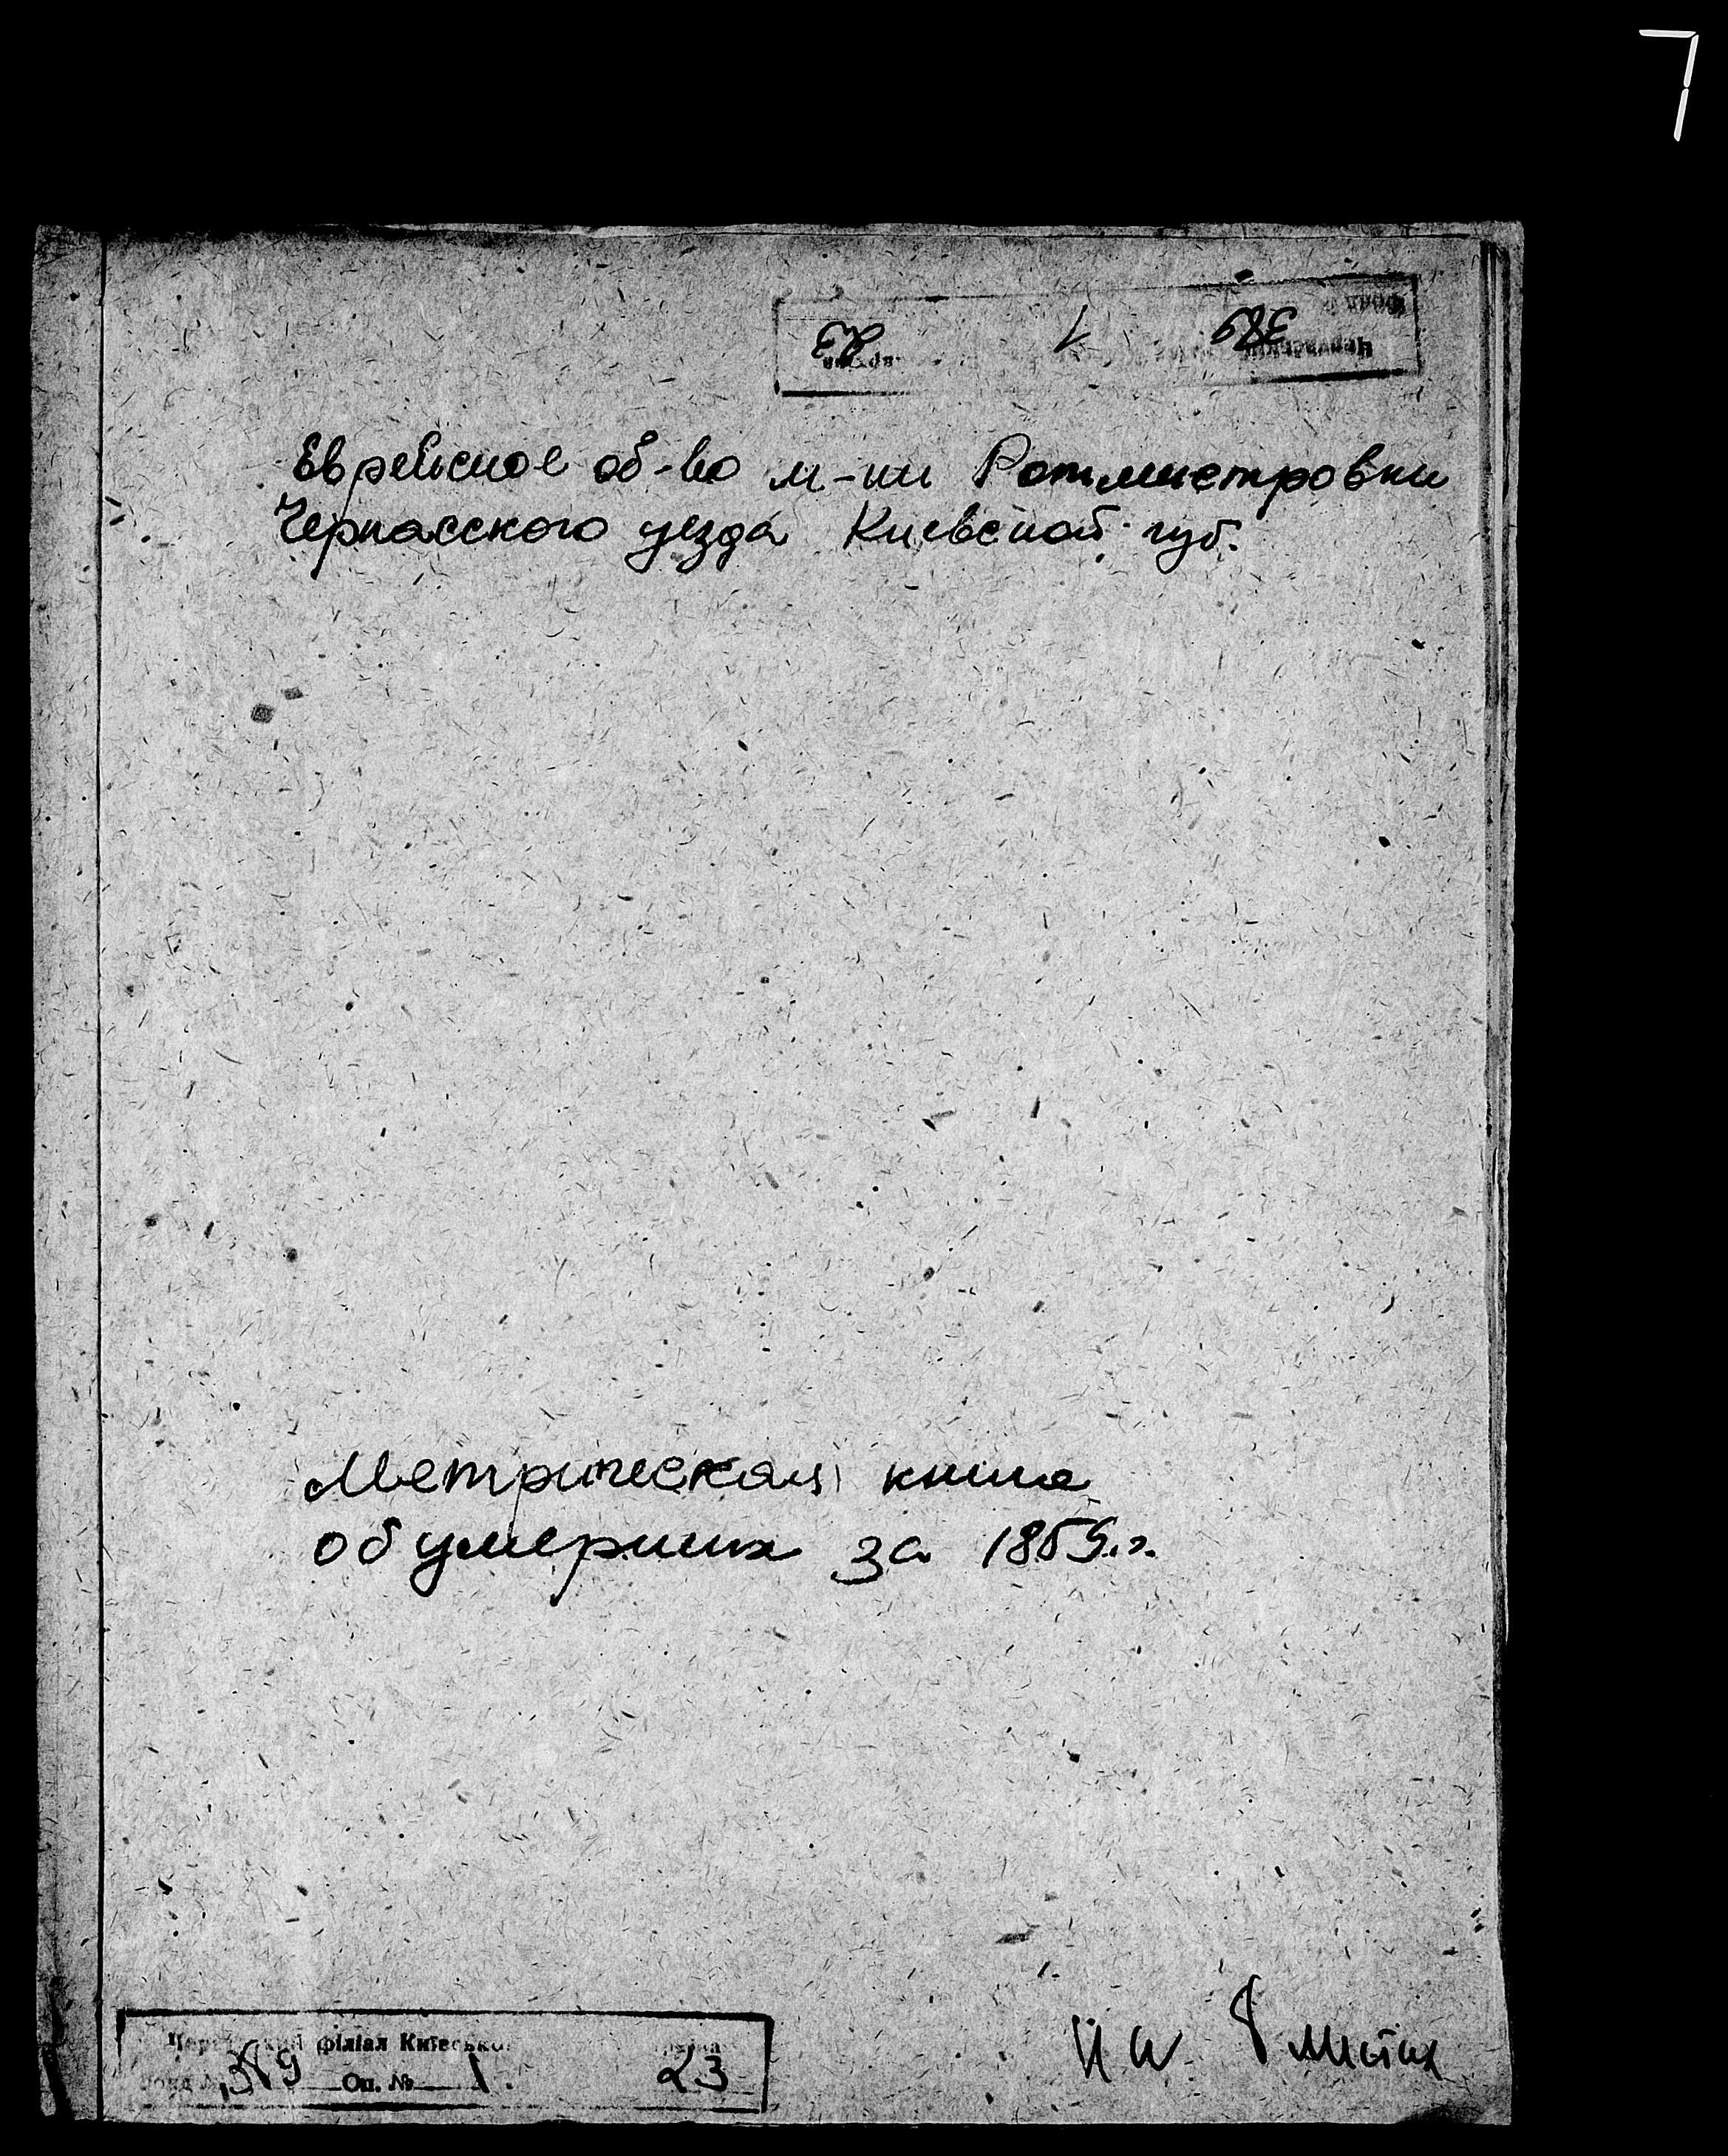 7
23 1 389
Еврейское об-во м-ки Ротмистровки
Черкасского уезда Киевской губ.
Метрическая книга
об умерших за 1859 г.
філіал Київсько
389 Оп. № 1. 23
На 8 листах